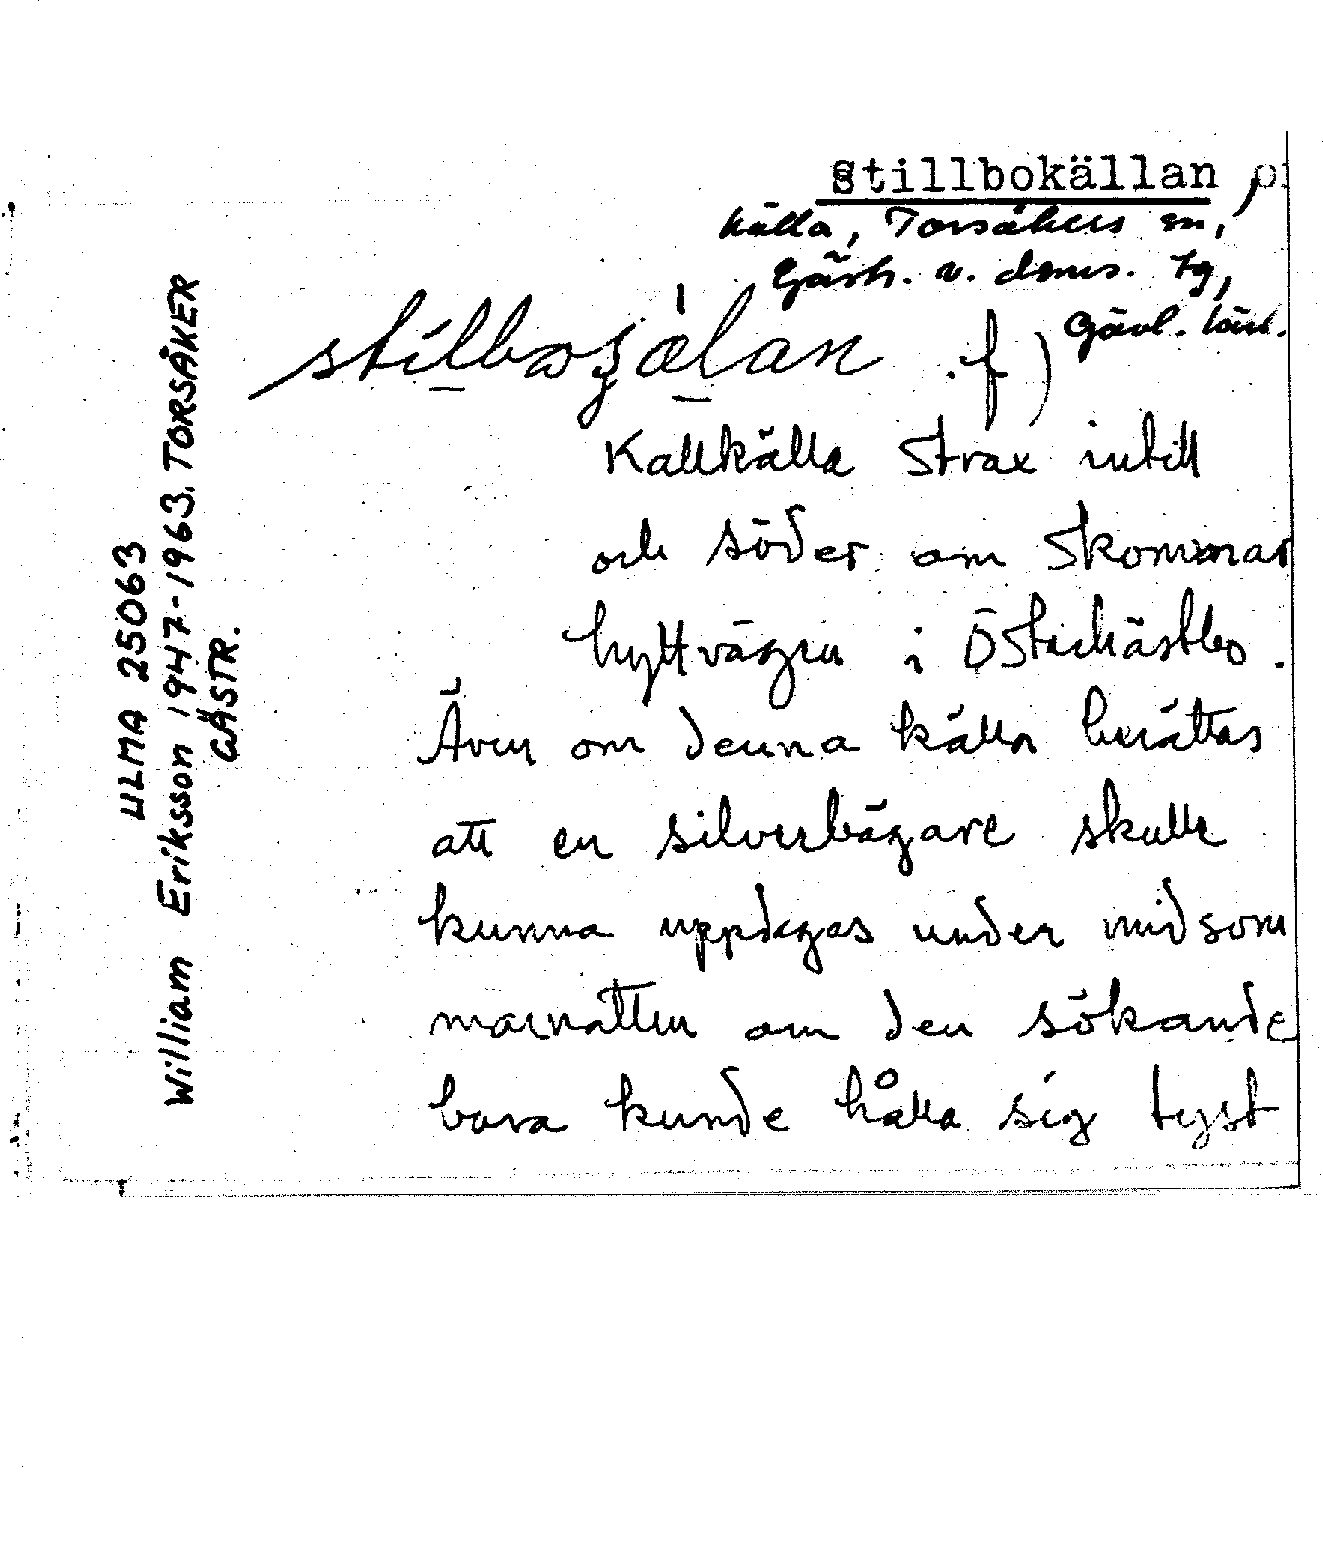 stillbokällan,
källa, Torsåkers sn,
Gästr. v. doms. tg,
Gävl. län.
f)
Kallkälla strax intill
och söder om Skommar
hyttvägen i Österhästbo.
Även om denna källa berättas
att en silverbägare skulle
kunna uppdagas under midsom
marnatten om den sökande
bara kunde hålla sig tyst
ULMA 25063
William Eriksson 1947-1963. TORSÅKER
GÄSTR.